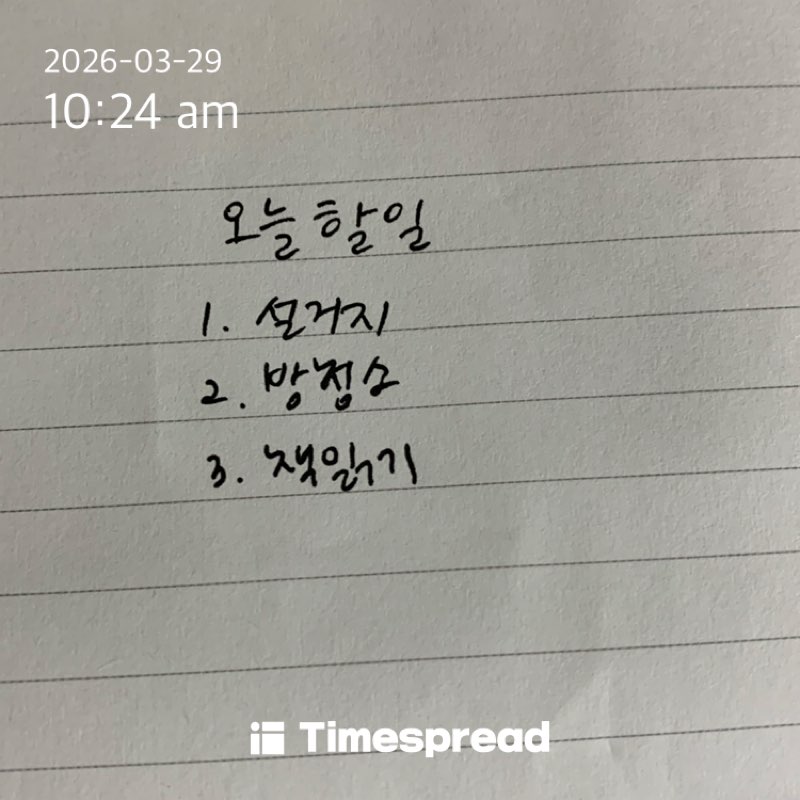 2026-03-29
10:24 am
오늘 할일
1. 설거지
2. 방청소
3. 책읽기
Timespread